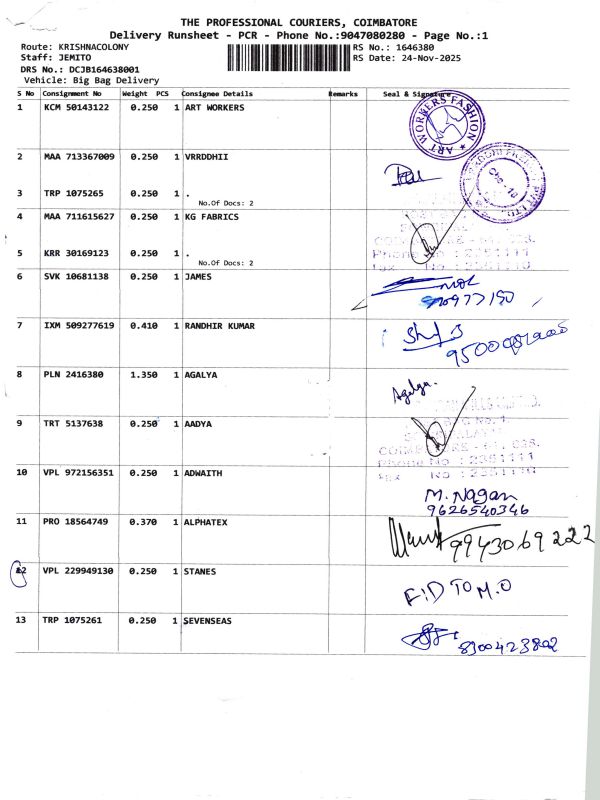 THE PROFESSIONAL COURIERS, COIMBATORE
Delivery Runsheet - PCR - Phone No.:9047080280 - Page No.:1
Route: KRISHNACOLONY RS No.: 1646380
Staff: JEMITO RS Date: 24-Nov-2025
DRS No.: DCJB164638001
Vehicle: Big Bag Delivery
S No Consignment No Weight PCS Consignee Details Remarks Seal & Signature
1 KCM 50143122 0.250 1 ART WORKERS
ART WORKERS FASHION
2 MAA 713367009 0.250 1 VRRDDHII
3 TRP 1075265 0.250 1 .
No.Of Docs: 2
4 MAA 711615627 0.250 1 KG FABRICS
5 KRR 30169123 0.250 1 .
No.Of Docs: 2
6 SVK 10681138 0.250 1 JAMES
7 IXM 509277619 0.410 1 RANDHIR KUMAR
8 PLN 2416380 1.350 1 AGALYA
Agalya.
9 TRT 5137638 0.250 1 AADYA
Phone No : 2351111
10 VPL 972156351 0.250 1 ADWAITH
M. Nagan
9626540346
11 PRO 18564749 0.370 1 ALPHATEX
9943069222
12 VPL 229949130 0.250 1 STANES
F.D TO M.O
13 TRP 1075261 0.250 1 SEVENSEAS
8300423802